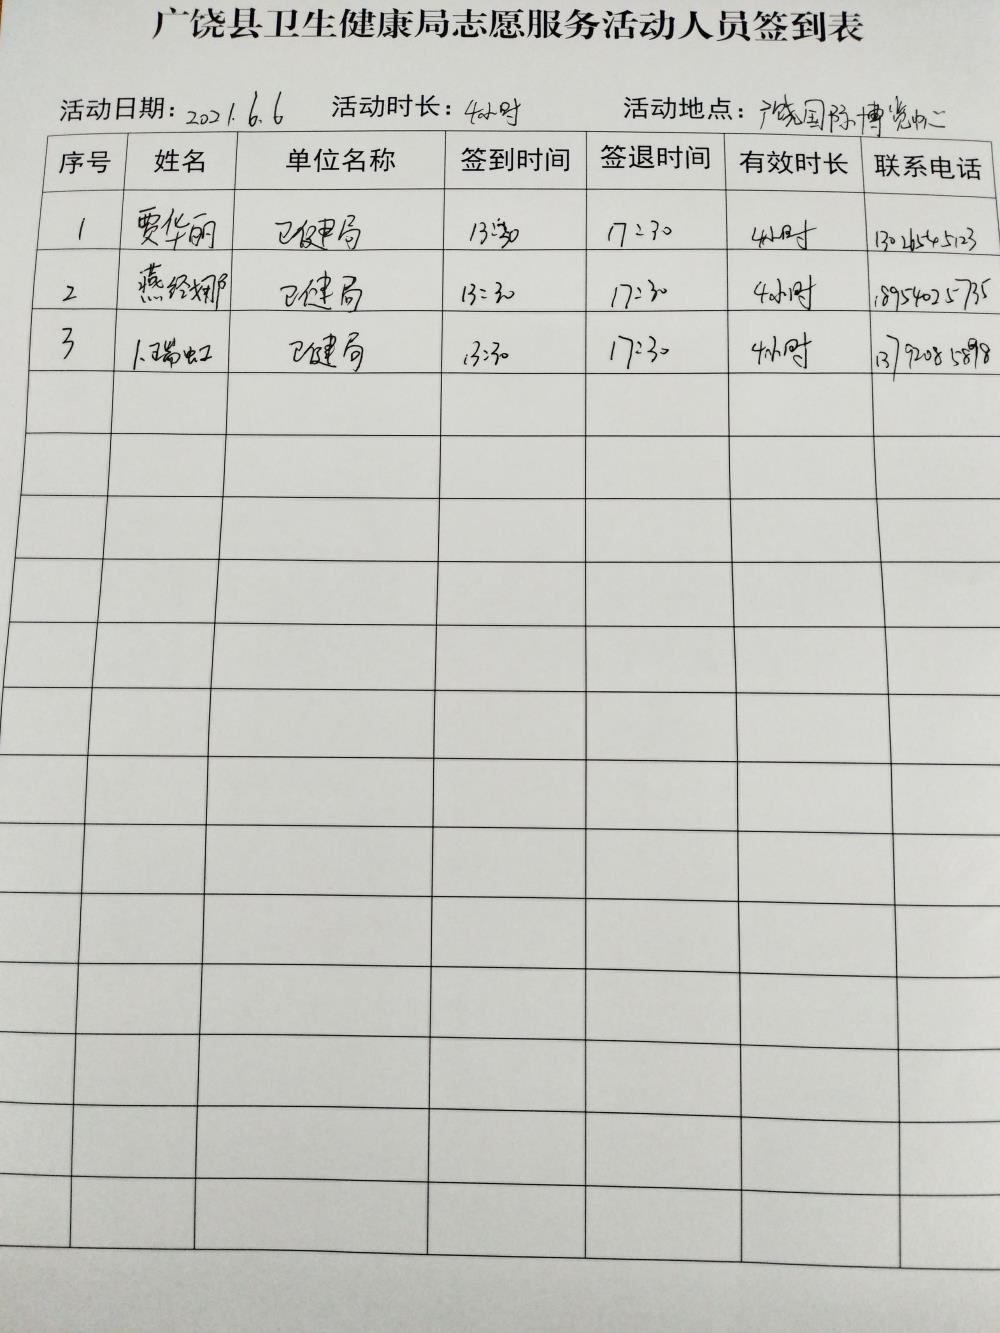 广饶县卫生健康局志愿服务活动人员签到表
活动日期：2021.6.6 活动时长：4小时 活动地点：广饶国际博览中心
序号 姓名 单位名称 签到时间 签退时间 有效时长 联系电话
1 贾华丽 卫健局 13:30 17:30 4小时 13026545123
2 燕经娜 卫健局 13:30 17:30 4小时 18954025735
3 瑞虹 卫健局 13:30 17:30 4小时 13792085898